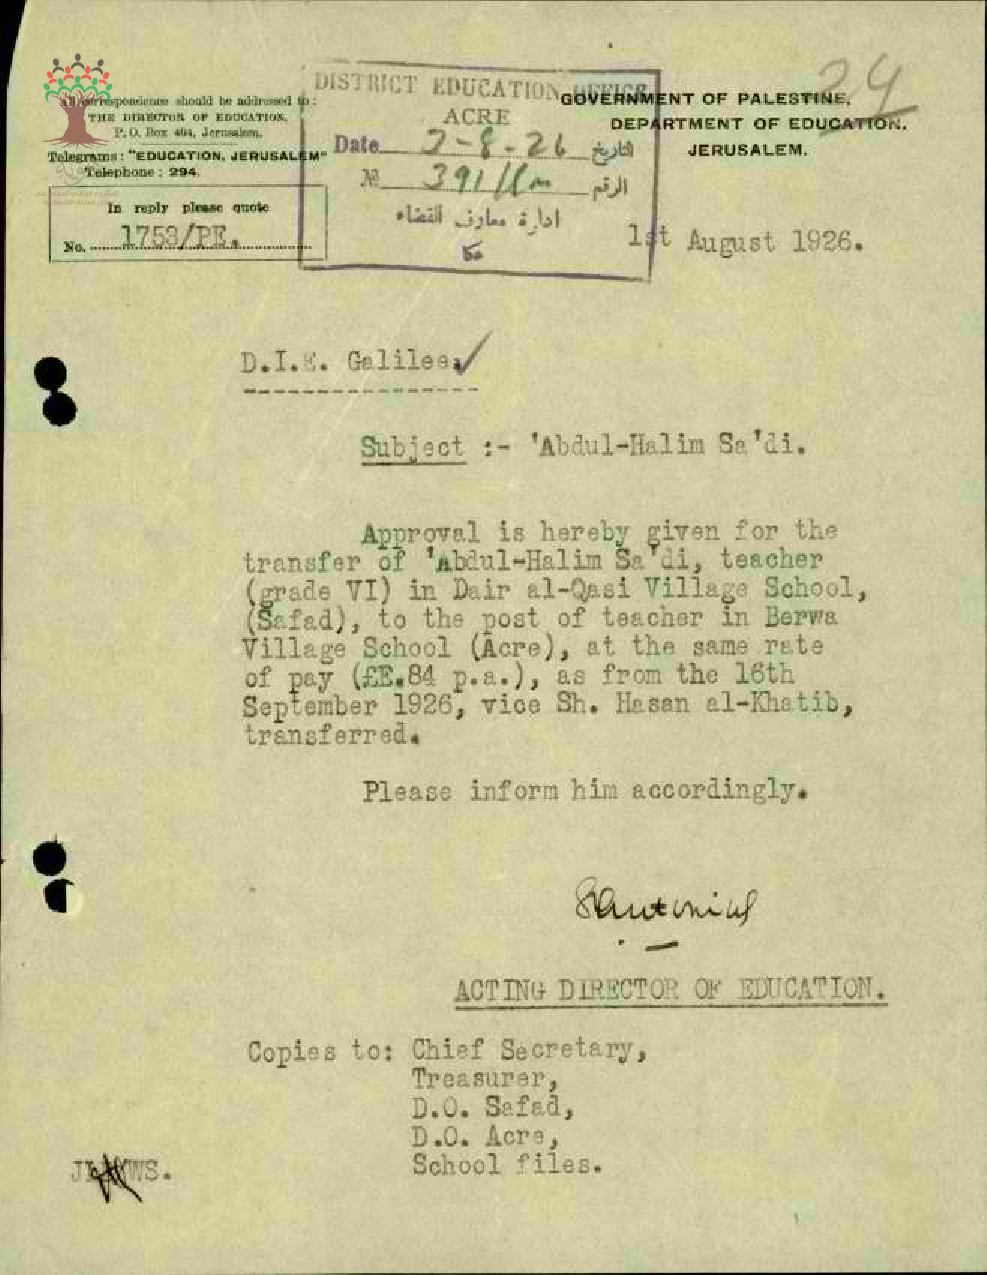 24
All correspondence should be addressed to:
THE DIRECTOR OF EDUCATION,
P. O. Box 464, Jerusalem.
Telegrams: "EDUCATION, JERUSALEM"
Telephone: 294.
In reply please quote
No. 1753/PE.
DISTRICT EDUCATION OFFICE
ACRE
Date 3-8-26 التاريخ
№ 391/ الرقم
ادارة معارف القضاء
عكا
GOVERNMENT OF PALESTINE,
DEPARTMENT OF EDUCATION,
JERUSALEM.
1st August 1926.
D.I.E. Galilee.
Subject :- 'Abdul-Halim Sa'di.
Approval is hereby given for the
transfer of 'Abdul-Halim Sa'di, teacher
(grade VI) in Dair al-Qasi Village School,
(Safad), to the post of teacher in Berwa
Village School (Acre), at the same rate
of pay (£E.84 p.a.), as from the 16th
September 1926, vice Sh. Hasan al-Khatib,
transferred.
Please inform him accordingly.
ACTING DIRECTOR OF EDUCATION.
Copies to: Chief Secretary,
Treasurer,
D.O. Safad,
D.O. Acre,
School files.